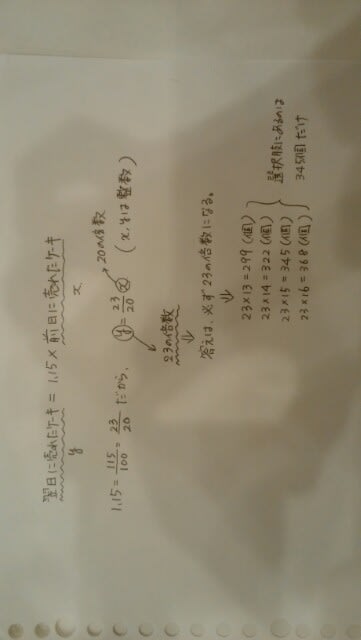 翌日に売れたケーキ = 1.15 × 前日に売れたケーキ
y x
1.15 = 115/100 = 23/20 だから、 y = 23/20 x → 20の倍数
(x, yは整数)
23の倍数
⇓
答えは、必ず23の倍数になる。
⇓
23×13=299 (個)
23×14=322 (個)
23×15=345 (個)
23×16=368 (個)
選択肢にあるのは
345個だけ